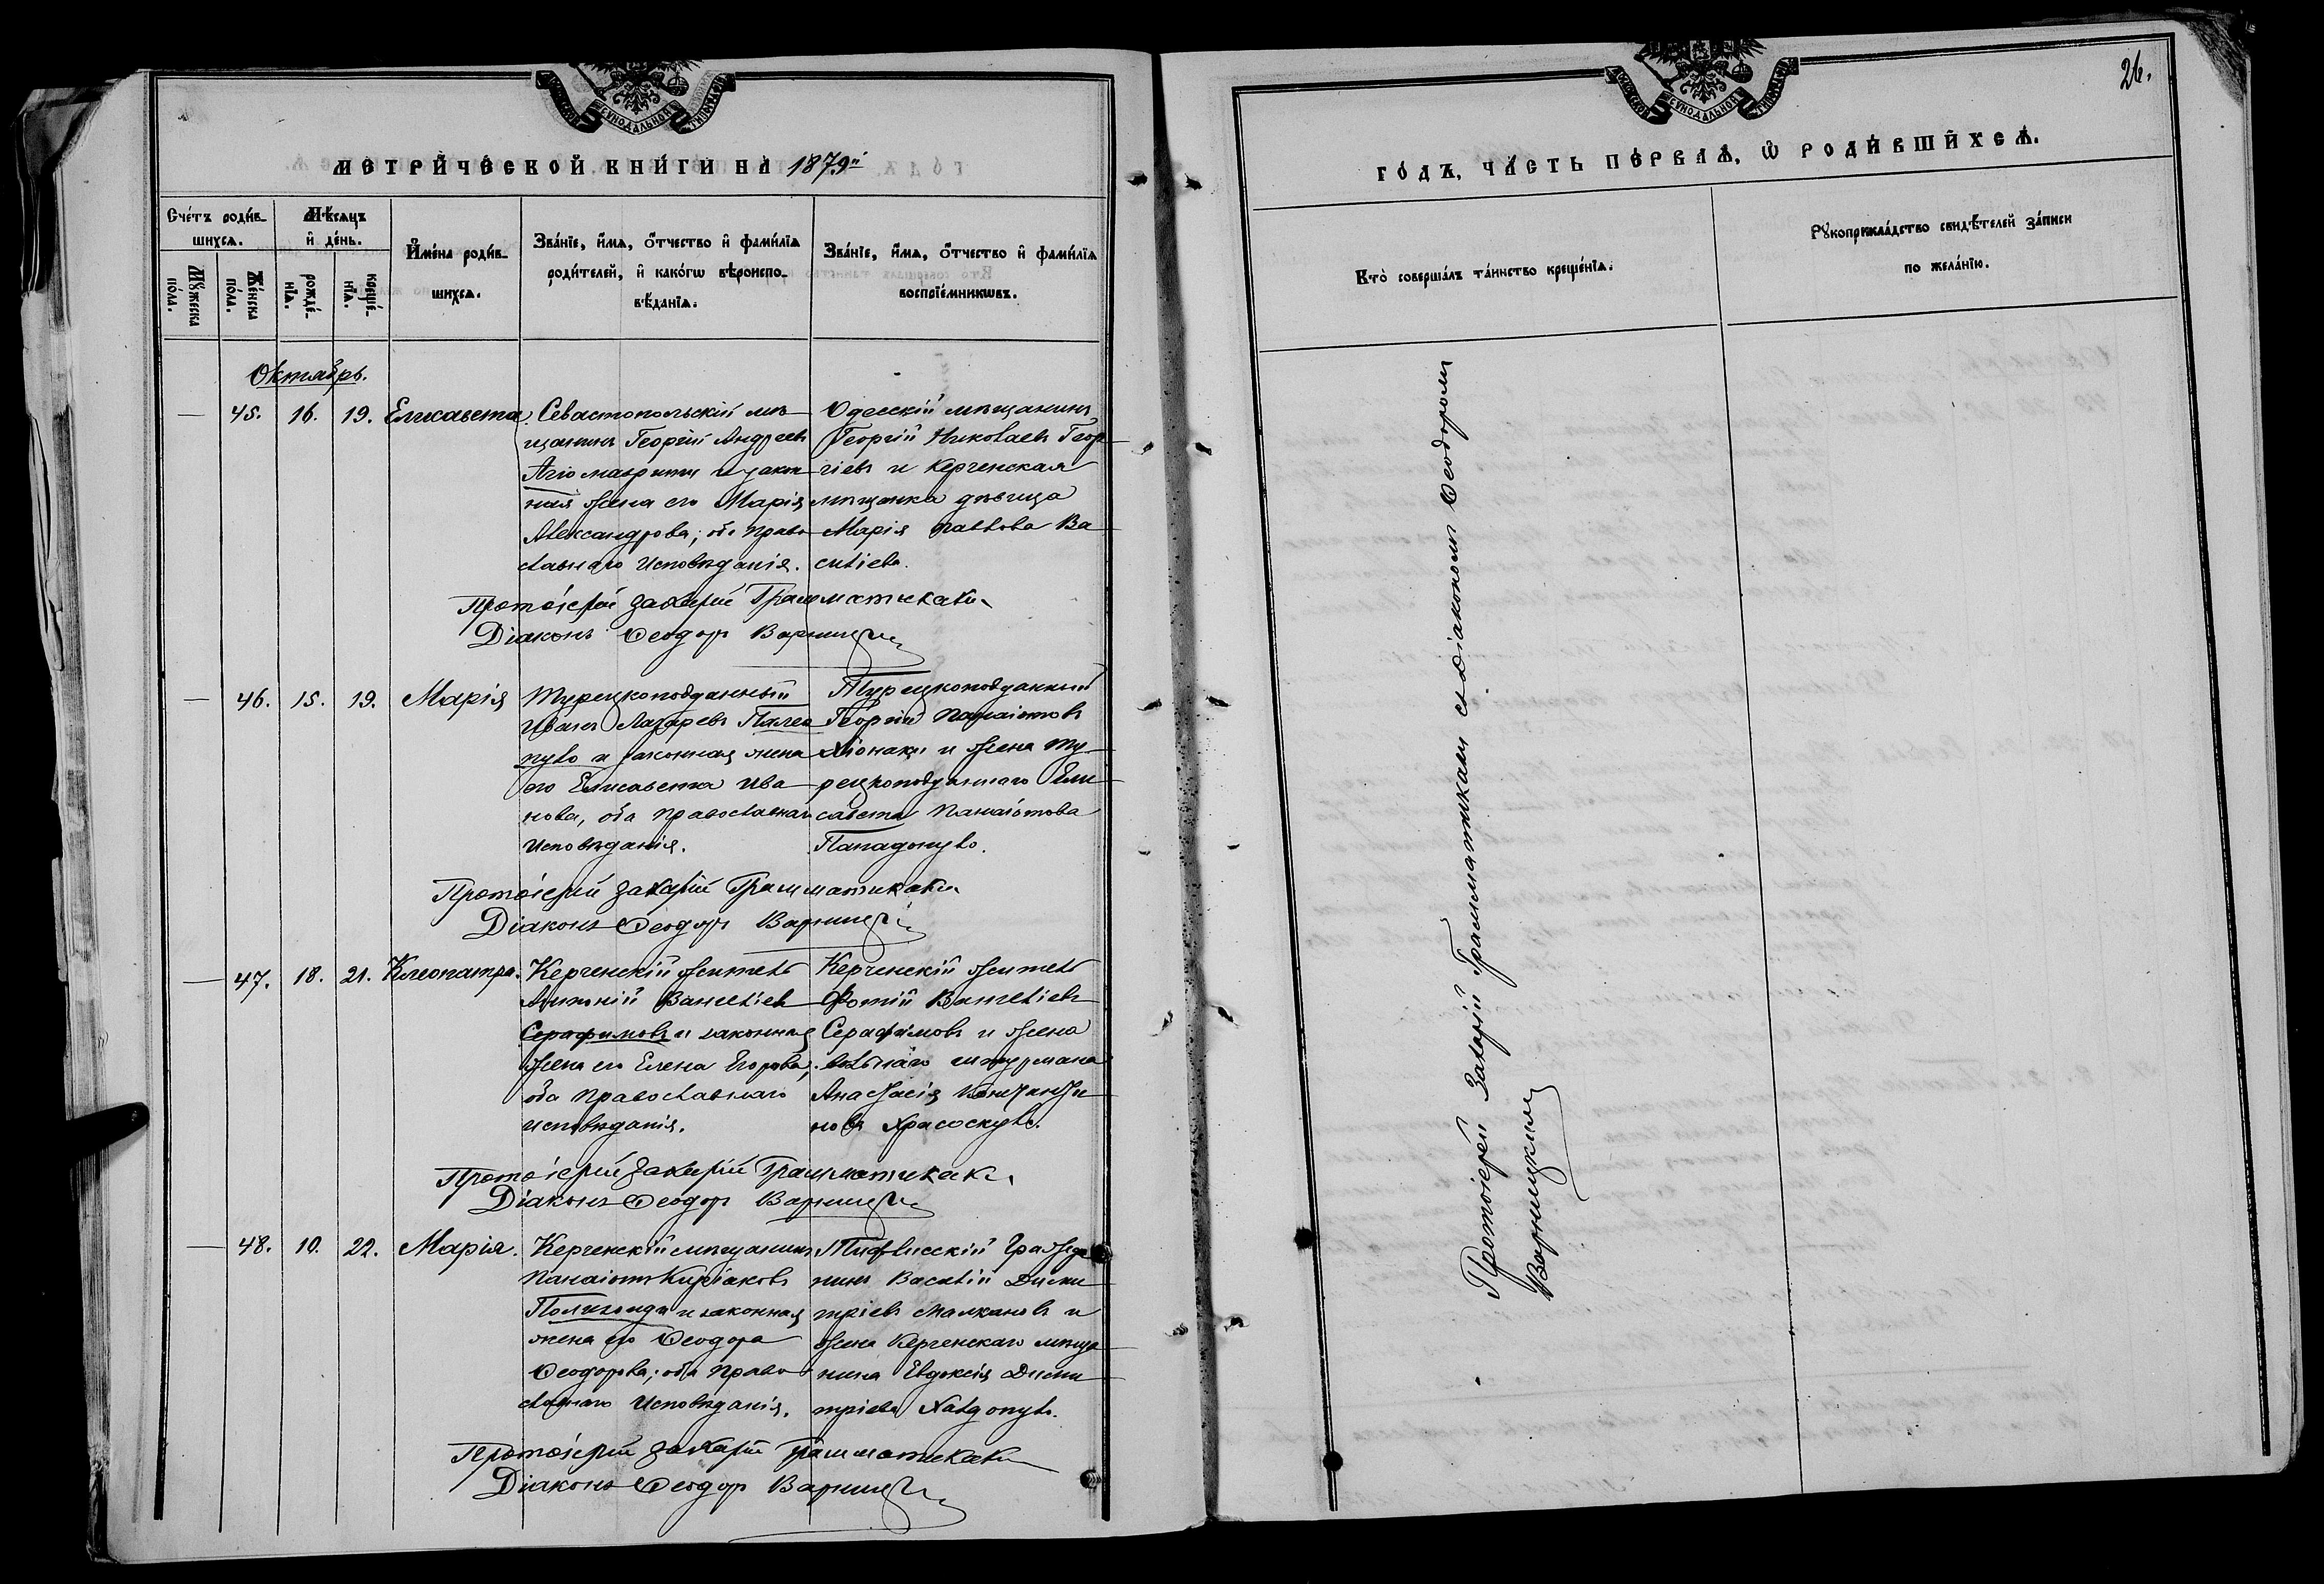 МЕТРИ́ЧЕСКОЙ КНИ́ГИ НА 1879й
Сче́тъ роди́в-
шихсѧ.
Мѣ́сѧцъ
и҆ де́нь.
Мꙋ́жеска
по́ла.
Же́нска
по́ла.
рожде́-
нїѧ.
креще́-
нїѧ.
И҆мена̀ роди́в-
шихсѧ.
Зва́нїе, и҆́мѧ, о҆́тчество и҆ фами́лїѧ
роди́телей, и҆ како́гѡ вѣроиспо-
вѣ́данїѧ.
Зва́нїе, и҆́мѧ, о҆́тчество и҆ фами́лїѧ
воспрїе́мникѡвъ.
Октябрь.
— 45. 16. 19. Елисавета.
Севастопольскій мѣ-
щанинъ Георгій Андреевъ
и закон
ная жена его Марія
Александрова; оба Право
славнаго Исповѣданія.
Одесскій мѣщанинъ
Георгій Николаевъ Геор
гіевъ и Керченская
мѣщанка дѣвица
Марія Павлова Ва
силіева.
Протоіерей Захарій Грамматикаки
Діаконъ Ѳеодоръ Варницкій
— 46. 15. 19. Марія
Турецкоподданный
Иванъ Лазаревъ Палео
пуло и законная жена
его Елисавета Ива
нова, оба Православнаго
Исповѣданія.
Турецкоподданный
Георгій Панаіотовъ
Хіонаки и жена Ту-
рецкоподданнаго Ели
савета Панаіотова
Пападопуло.
Протоіерей Захарій Грамматикаки
Діаконъ Ѳеодоръ Варницкій
— 47. 18. 21. Клеопатра.
Керченскій житель
Антоній Вангеліевъ
Серафимовъ и законная
жена его Елена Егорова;
оба Православнаго
исповѣданія.
Керченскій житель
Фотій Вангеліевъ
Серафимовъ и жена
вольнаго штурмана
Анастасія Константи
нова Хрисоскуло.
Протоіерей Захарій Грамматикаки
Діаконъ Ѳеодоръ Варницкій
— 48. 10. 22. Марія.
Керченскій мѣщанинъ
Панаіотъ Киріаковъ
и законная
жена его Ѳеодора
Ѳеодорова; оба Право
славнаго Исповѣданія.
Тифлисскій Гражда
нинъ Василій Дими
тріевъ Малхановъ и
жена Керченскаго мѣща
нина Евдокія Дими
тріева Халдопуло.
Протоіерей Захарій Грамматикаки
Діаконъ Ѳеодоръ Варницкій
26.
ГО́ДЪ, ЧА́СТЬ ПЕ́РВАѦ, Ѡ҆ РОДИ́ВШИХСѦ.
Кто̀ соверша́лъ та́инство креще́нїѧ.
Рꙋкоприкла́дство свидѣ́телей за́писи
по жела́нїю.
Протоіерей Захарій Грамматикаки съ Діакономъ Ѳеодоромъ
Варницкимъ